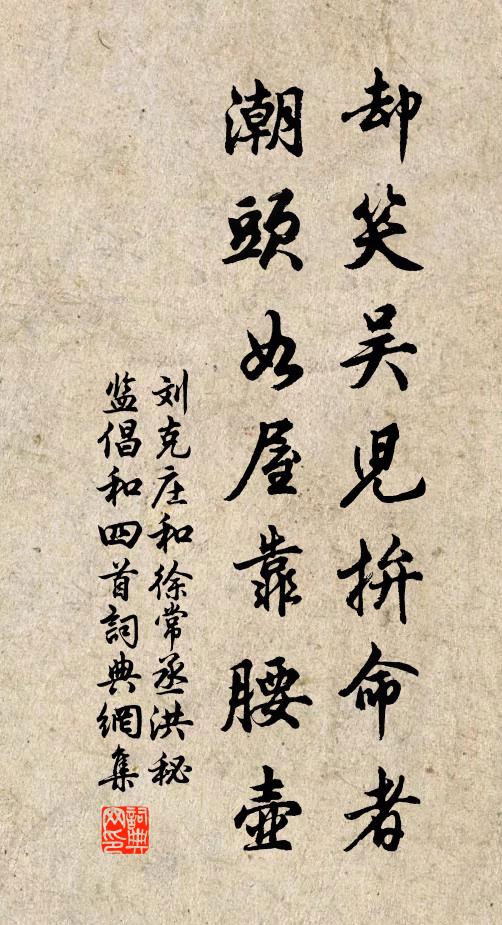 却笑吴兒拚命者
潮頭如屋靠腰壺
刘克庄和徐常丞洪秘
监倡和四首詞典網集
詞典
网印